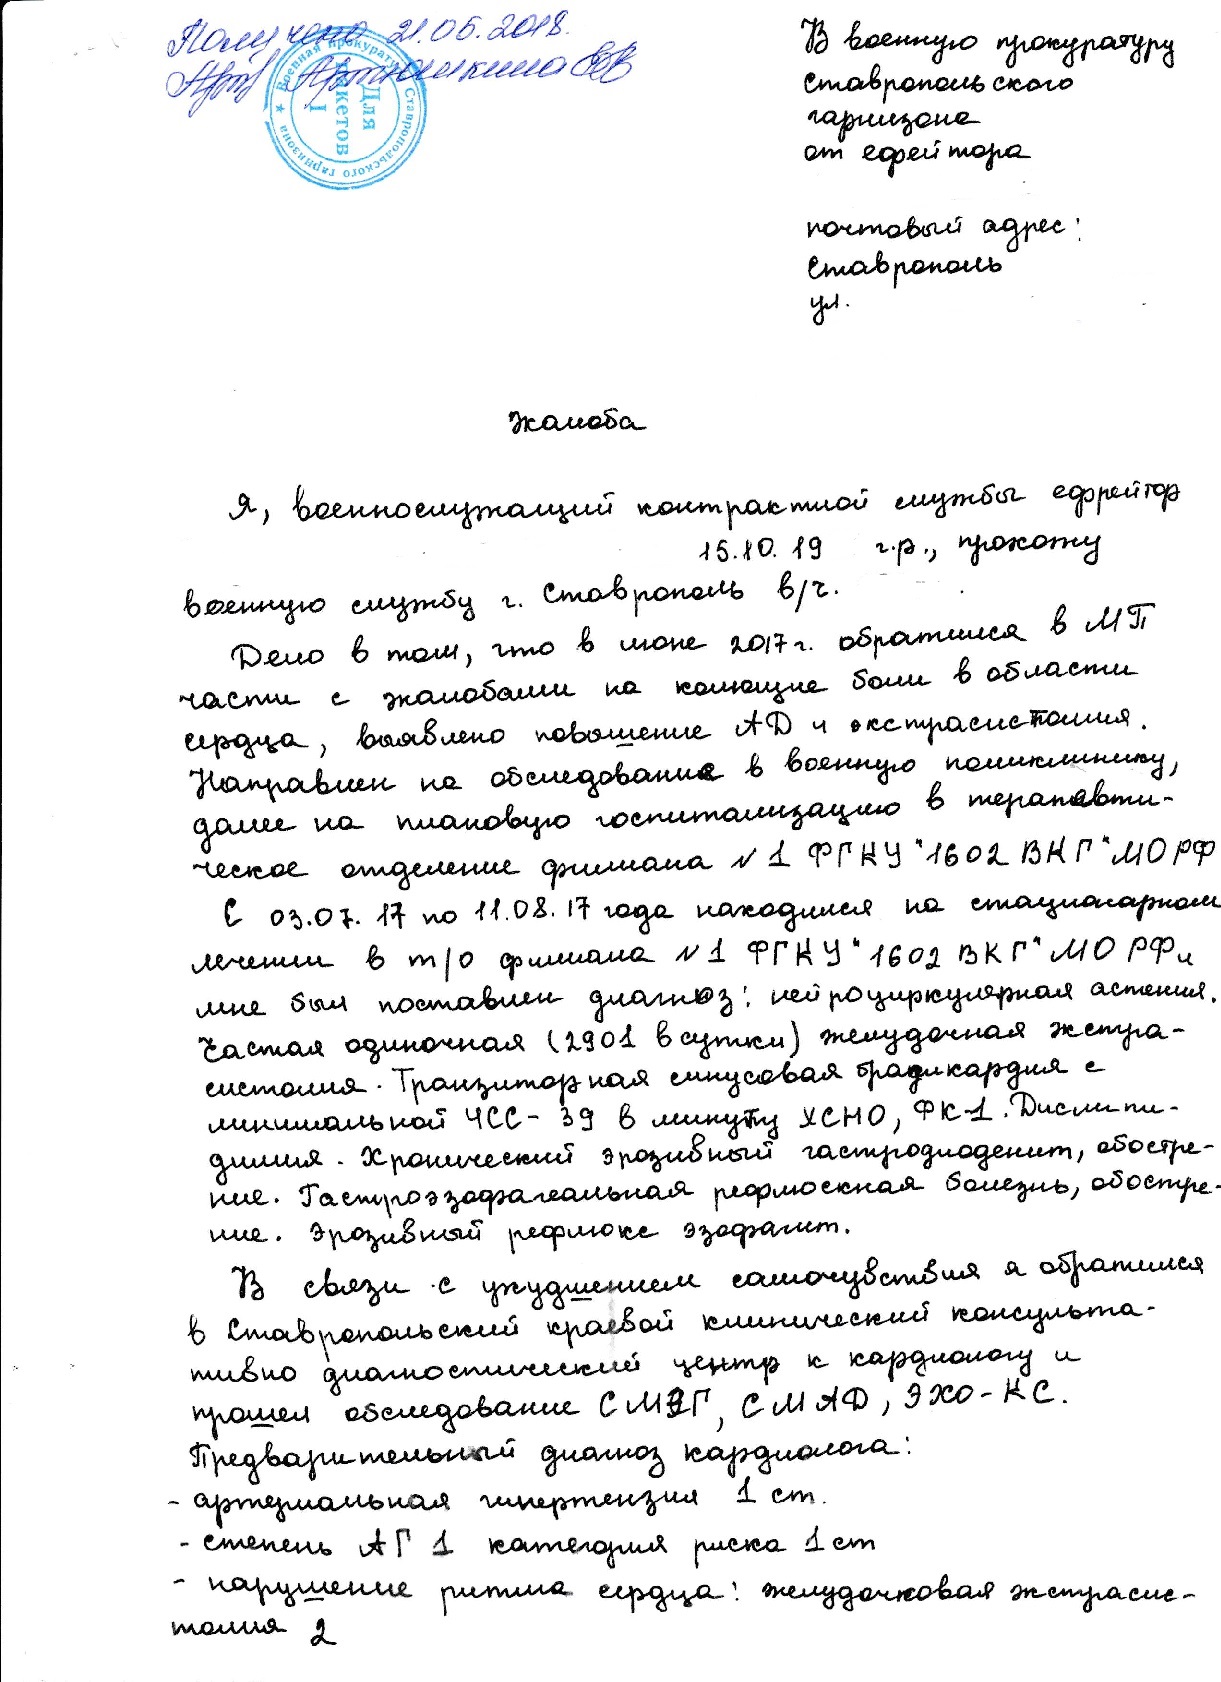 Получено 21.06.2018.
Артюшкина ЕВ
Военная прокуратура Ставропольского гарнизона
Для
пакетов
1
В военную прокуратуру
Ставропольского
гарнизона
от ефрейтора
почтовый адрес:
Ставрополь
ул.
Жалоба
Я, военнослужащий контрактной службы ефрейтор
15.10.19 г.р., прохожу
военную службу г. Ставрополь в/ч.
Дело в том, что в июне 2017 г. обратился в МП
части с жалобами на колющие боли в области
сердца, выявлено повышение АД и экстрасистолия.
Направлен на обследование в военную поликлинику,
далее на плановую госпитализацию в терапевти-
ческое отделение филиала №1 ФГКУ "1602 ВКГ" МО РФ
С 03.07.17 по 11.08.17 года находился на стационарном
лечении в т/о филиала №1 ФГКУ "1602 ВКГ" МО РФ и
мне был поставлен диагноз: нейроциркулярная астения.
Частая одиночная (2901 в сутки) желудочная экстра-
систолия. Транзиторная синусовая брадикардия с
минимальной ЧСС - 39 в минуту ХСНО, ФК-1. Дислипи-
димия. Хронический эрозивный гастродиоденит, обостре-
ние. Гастроэзофагеальная рефлюксная болезнь, обостре-
ние. Эрозивный рефлюкс эзофагит.
В связи с ухудшением самочувствия я обратился
в Ставропольский краевой клинический консульта-
тивно диагностический центр к кардиологу и
прошел обследование СМЭГ, СМАД, ЭХО-КС.
Предварительный диагноз кардиолога:
- артериальная гипертензия 1 ст.
- степень АГ 1 категория риска 1 ст
- нарушение ритма сердца: желудочковая экстрасис-
толия 2